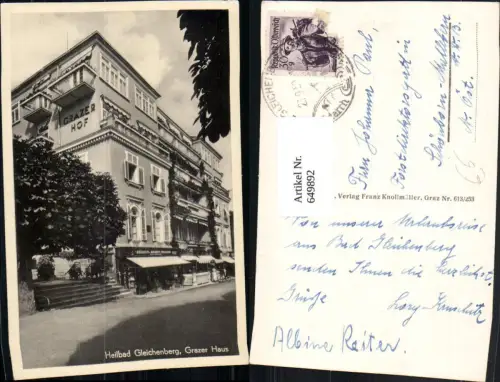 GRAZER
HOF
Heilbad Gleichenberg, Grazer Haus
Artikel Nr.
649892
. Verlag Franz Knollmüller, Graz Nr. 613/253
Frau Johanna Paul,
Forstdirektorsgattin
N. Öst.
Von unserer Urlaubsreise
aus Bad Gleichenberg
senden Ihnen die herzlichst.
Grüße
Albine Raiter.